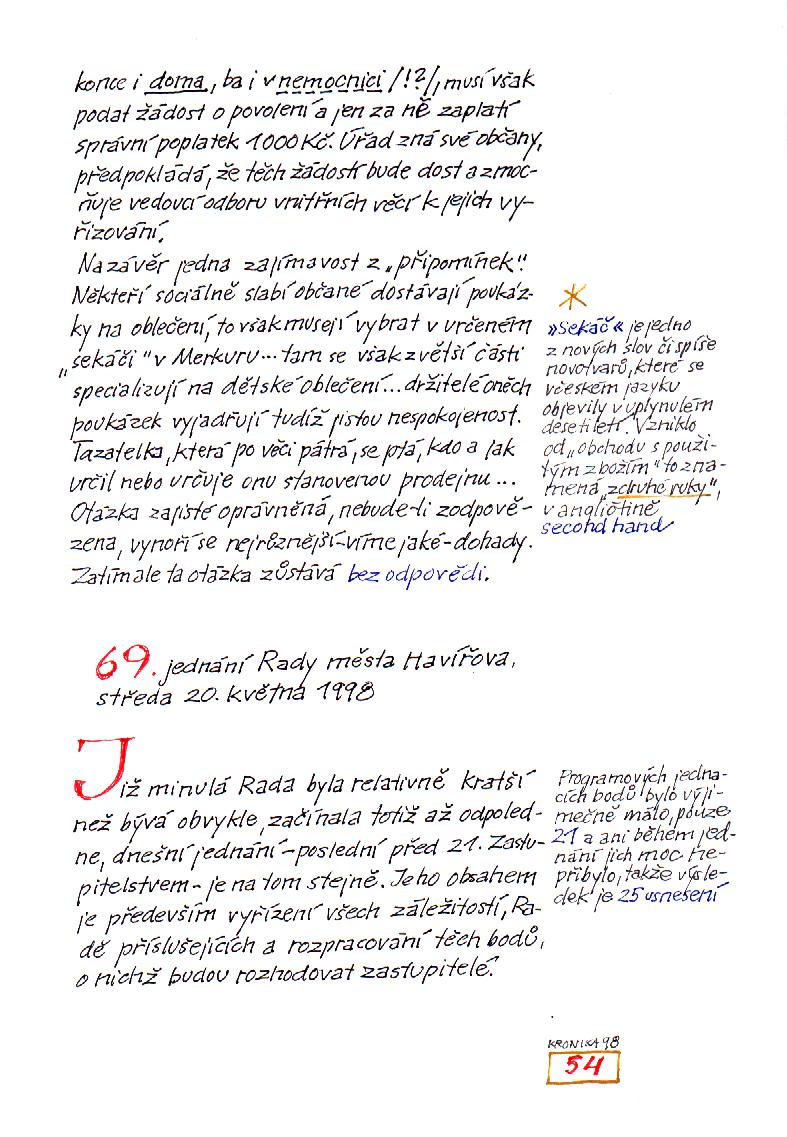 konce i doma, ba i v nemocnici /!?/, musí však
podat žádost o povolení a jen za ně zaplatí
správní poplatek 1000 Kč. Úřad zná své občany,
předpokládá, že těch žádostí bude dost a zmoc-
ňuje vedoucí odboru vnitřních věcí k jejich vy-
řizování.
Na závěr jedna zajímavost z „připomínek".
Někteří sociálně slabí občané dostávají poukáz-
ky na oblečení, to však musejí vybrat v určeném
„sekáči" v Merkuru... tam se však z větší části
specializují na dětské oblečení... držitelé oněch
poukázek vyjadřují tudíž jistou nespokojenost.
Tazatelka, která po věci pátrá, se ptá, kdo a jak
určil nebo určuje onu stanovenou prodejnu...
Otázka zajisté oprávněná, nebude-li zodpově-
zena, vynoří se nejrůznější-víme jaké-dohady.
Zatím ale ta otázka zůstává bez odpovědi.
*
»Sekáč« je jedno
z nových slov či spíše
novotvarů, které se
v českém jazyku
objevily v uplynulém
desetiletí. Vzniklo
od „obchodu s použi-
tým zbožím" to zna-
mená „z druhé ruky",
v angličtině
second hand
69. jednání Rady města Havířova,
středa 20. května 1998
Již minulá Rada byla relativně kratší
než bývá obvykle, začínala totiž až odpoled-
ne, dnešní jednání - poslední před 21. Zastu-
pitelstvem - je na tom stejně. Jeho obsahem
je především vyřízení všech záležitostí, Ra-
dě příslušejících a rozpracování těch bodů,
o nichž budou rozhodovat zastupitelé.
Programových jedna-
cích bodů bylo výji-
mečně málo, pouze
21 a ani během jed-
nání jich moc ne-
přibylo, takže výsle-
dek je 25 usnesení
KRONIKA 98
54